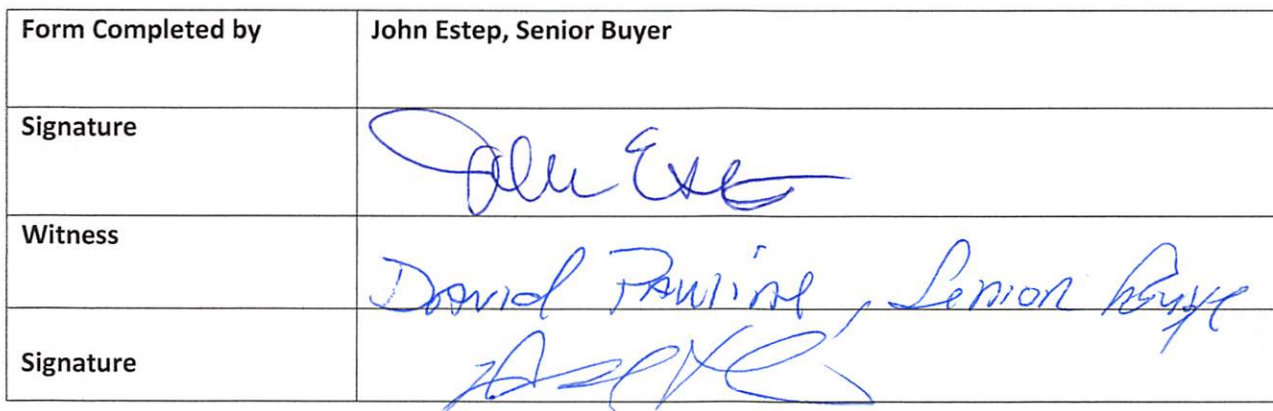 Form Completed by
John Estep, Senior Buyer
Signature
John Estep
Witness
David Pauline, Senior Buyer
Signature